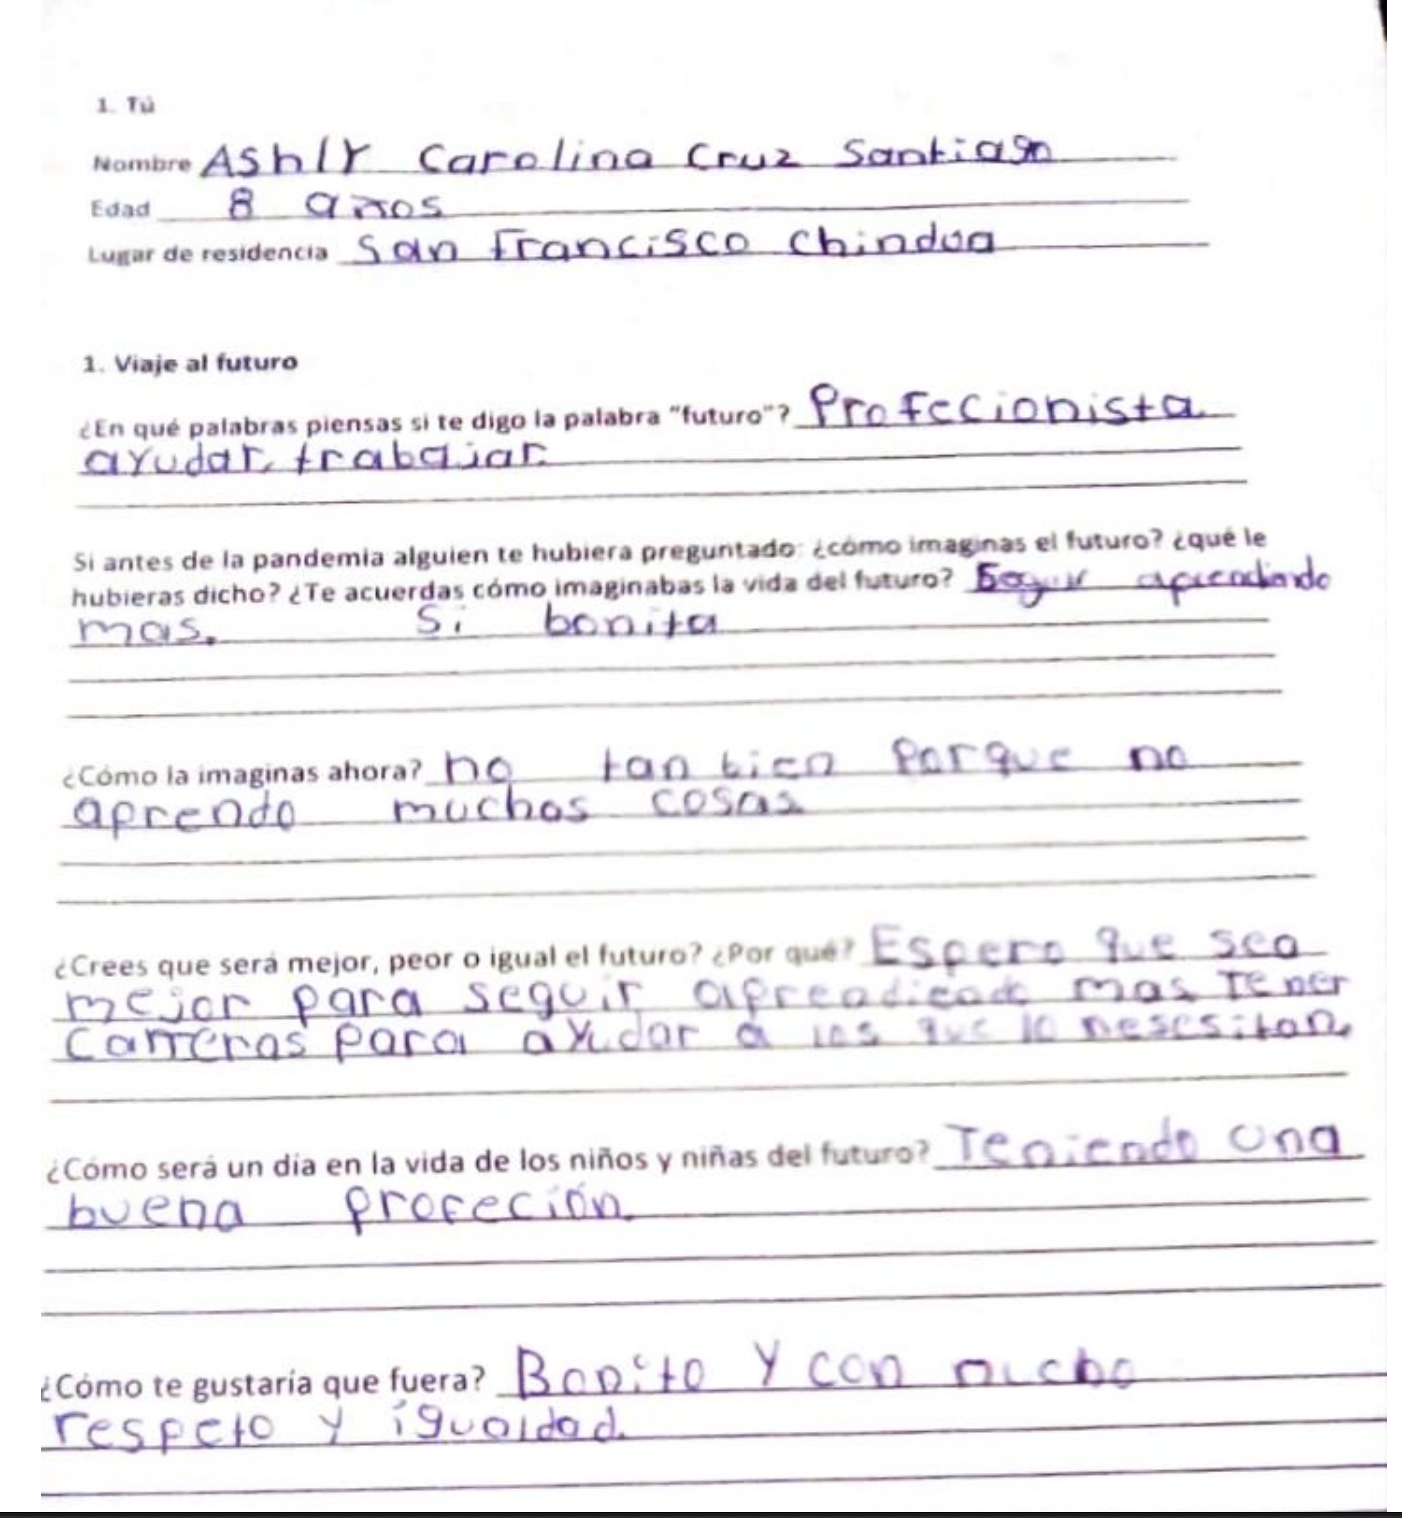 1. Tú
Nombre Ashly Carolina Cruz Santiago
Edad 8 años
Lugar de residencia San Francisco Chindua
1. Viaje al futuro
¿En qué palabras piensas si te digo la palabra "futuro"? Profecionista
ayudar, trabajar.
Si antes de la pandemia alguien te hubiera preguntado: ¿cómo imaginas el futuro? ¿qué le
hubieras dicho? ¿Te acuerdas cómo imaginabas la vida del futuro? aprendiendo
mas. Si bonita
¿Cómo la imaginas ahora? no tan bien Porque no
aprendo muchas cosas
¿Crees que será mejor, peor o igual el futuro? ¿Por qué? Espero que sea
mejor para seguir mas Tener
Carreras para ayudar a los que lo nesesitan.
¿Cómo será un día en la vida de los niños y niñas del futuro? Teniendo una
buena profeción.
¿Cómo te gustaría que fuera? Bonito y con mucho
respeto y igualdad.